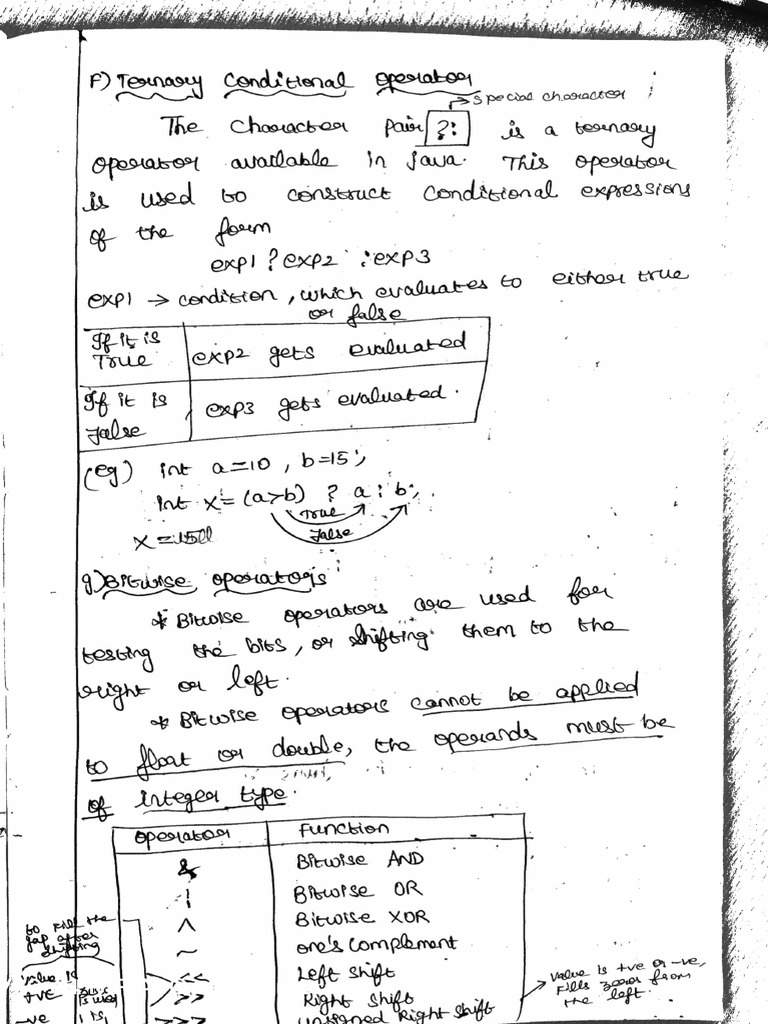 f) Ternary Conditional operator
→ special character
The character pair ?: is a ternary
operator available in java. This operator
is used to construct conditional expressions
of the form
exp1 ? exp2 : exp3
exp1 → condition, which evaluates to either true
or false
If it is True | exp2 gets evaluated
If it is False | exp3 gets evaluated.
(eg) int a=10, b=15;
int x = (a>b) ? a : b;
True
x = 15
False
g) Bitwise operators
* Bitwise operators are used for
testing the bits, or shifting them to the
right or left.
* Bitwise operators cannot be applied
to float or double, the operands must be
of integer type.
operator | Function
& | Bitwise AND
| | Bitwise OR
^ | Bitwise XOR
~ | one's complement
<< | Left shift
>> | Right shift
>>> | unsigned Right shift
to fill the
gap after
shifting
value is
+ve
-ve
→ value is +ve or -ve,
fills zeros from
the left.